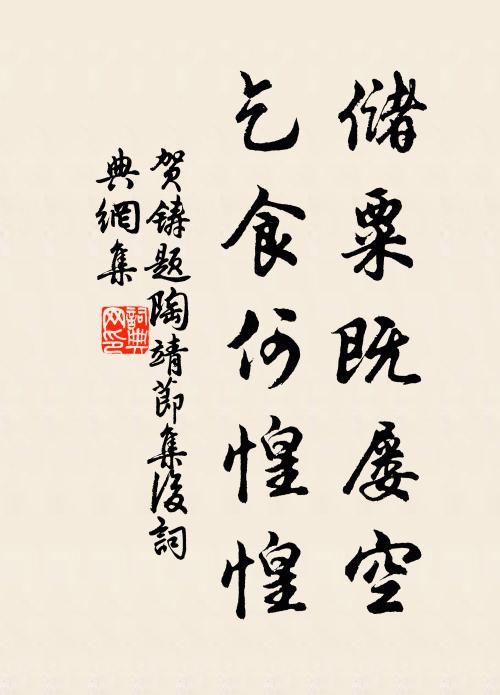 儲粟既屡空
乞食何惶惶
贺鑄题陶靖節集後詞
典網集
詞典网印